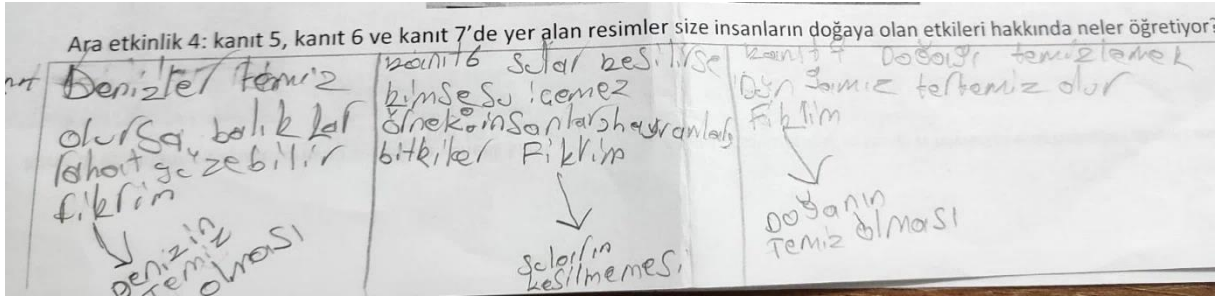 Ara etkinlik 4: kanıt 5, kanıt 6 ve kanıt 7'de yer alan resimler size insanların doğaya olan etkileri hakkında neler öğretiyor?
Denizler temiz
olursa balıklar
rahat yüzebilir
fikrim
Denizin
Temiz
olması
kanıt6 Sular kesilirse
kimse su içemez
örnek: insanlar, hayvanlar,
bitkiler Fikrim
Suların
kesilmemesi
kanıt 7 Doğayı temizlemek
Dünyamız tertemiz olur
Fikrim
Doğanın
Temiz olması